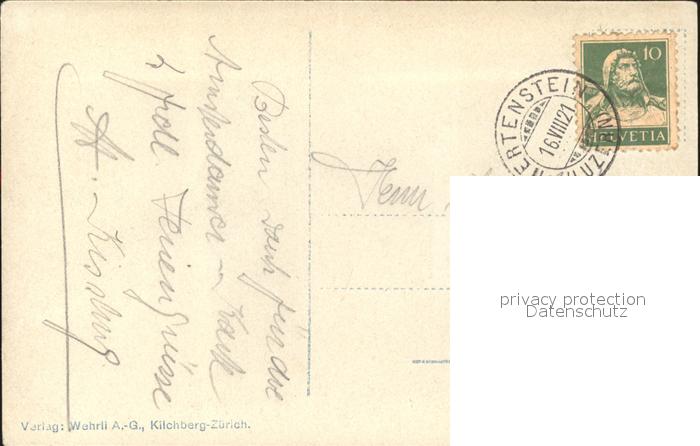 Besten Dank für die
Amsterdamer-Karte
& frdl. Feriengrüsse
Herrn
10
HELVETIA
HERTENSTEIN (LUZERN)
16.VIII.21
privacy protection
Datenschutz
Verlag: Wehrli A.-G., Kilchberg-Zürich.